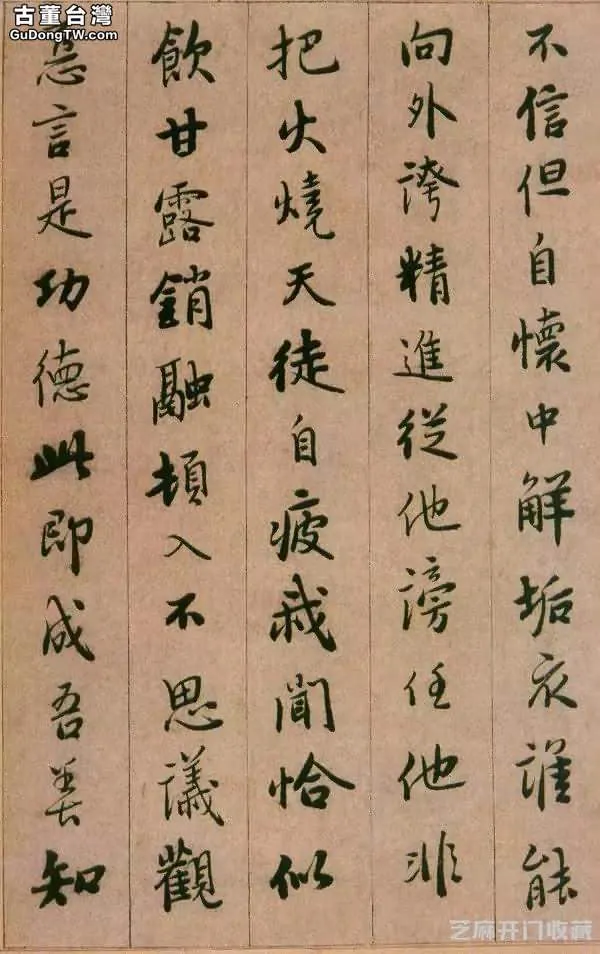 古董台灣
GuDongTW.com
不信但自懷中解垢衣誰能
向外誇精進從他謗任他非
把火燒天徒自疲我聞恰似
飲甘露銷融頓入不思議觀
惡言是功德此即成吾善知
芝麻开门收藏